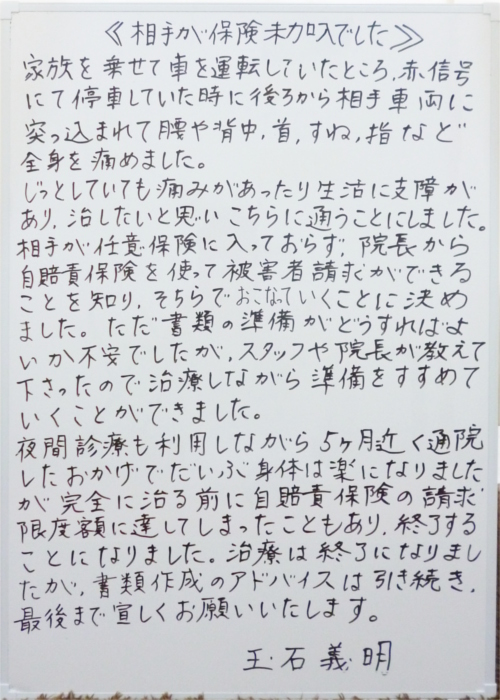 ≪相手が保険未加入でした≫
家族を乗せて車を運転していたところ、赤信号
にて停車していた時に後ろから相手車両に
突っ込まれて腰や背中、首、すね、指など
全身を痛めました。
じっとしていても痛みがあったり生活に支障が
あり、治したいと思いこちらに通うことにしました。
相手が任意保険に入っておらず、院長から
自賠責保険を使って被害者請求ができる
ことを知り、そちらでおこなていくことに決め
ました。ただ書類の準備がどうすればよ
いか不安でしたが、スタッフや院長が教えて
下さったので治療しながら準備をすすめて
いくことができました。
夜間診療も利用しながら5ヶ月近く通院
したおかげでだいぶ身体は楽になりました
が完全に治る前に自賠責保険の請求
限度額に達してしまったこともあり、終了する
ことになりました。治療は終了になりまし
たが、書類作成のアドバイスは引き続き、
最後まで宜しくお願いいたします。
玉石義明